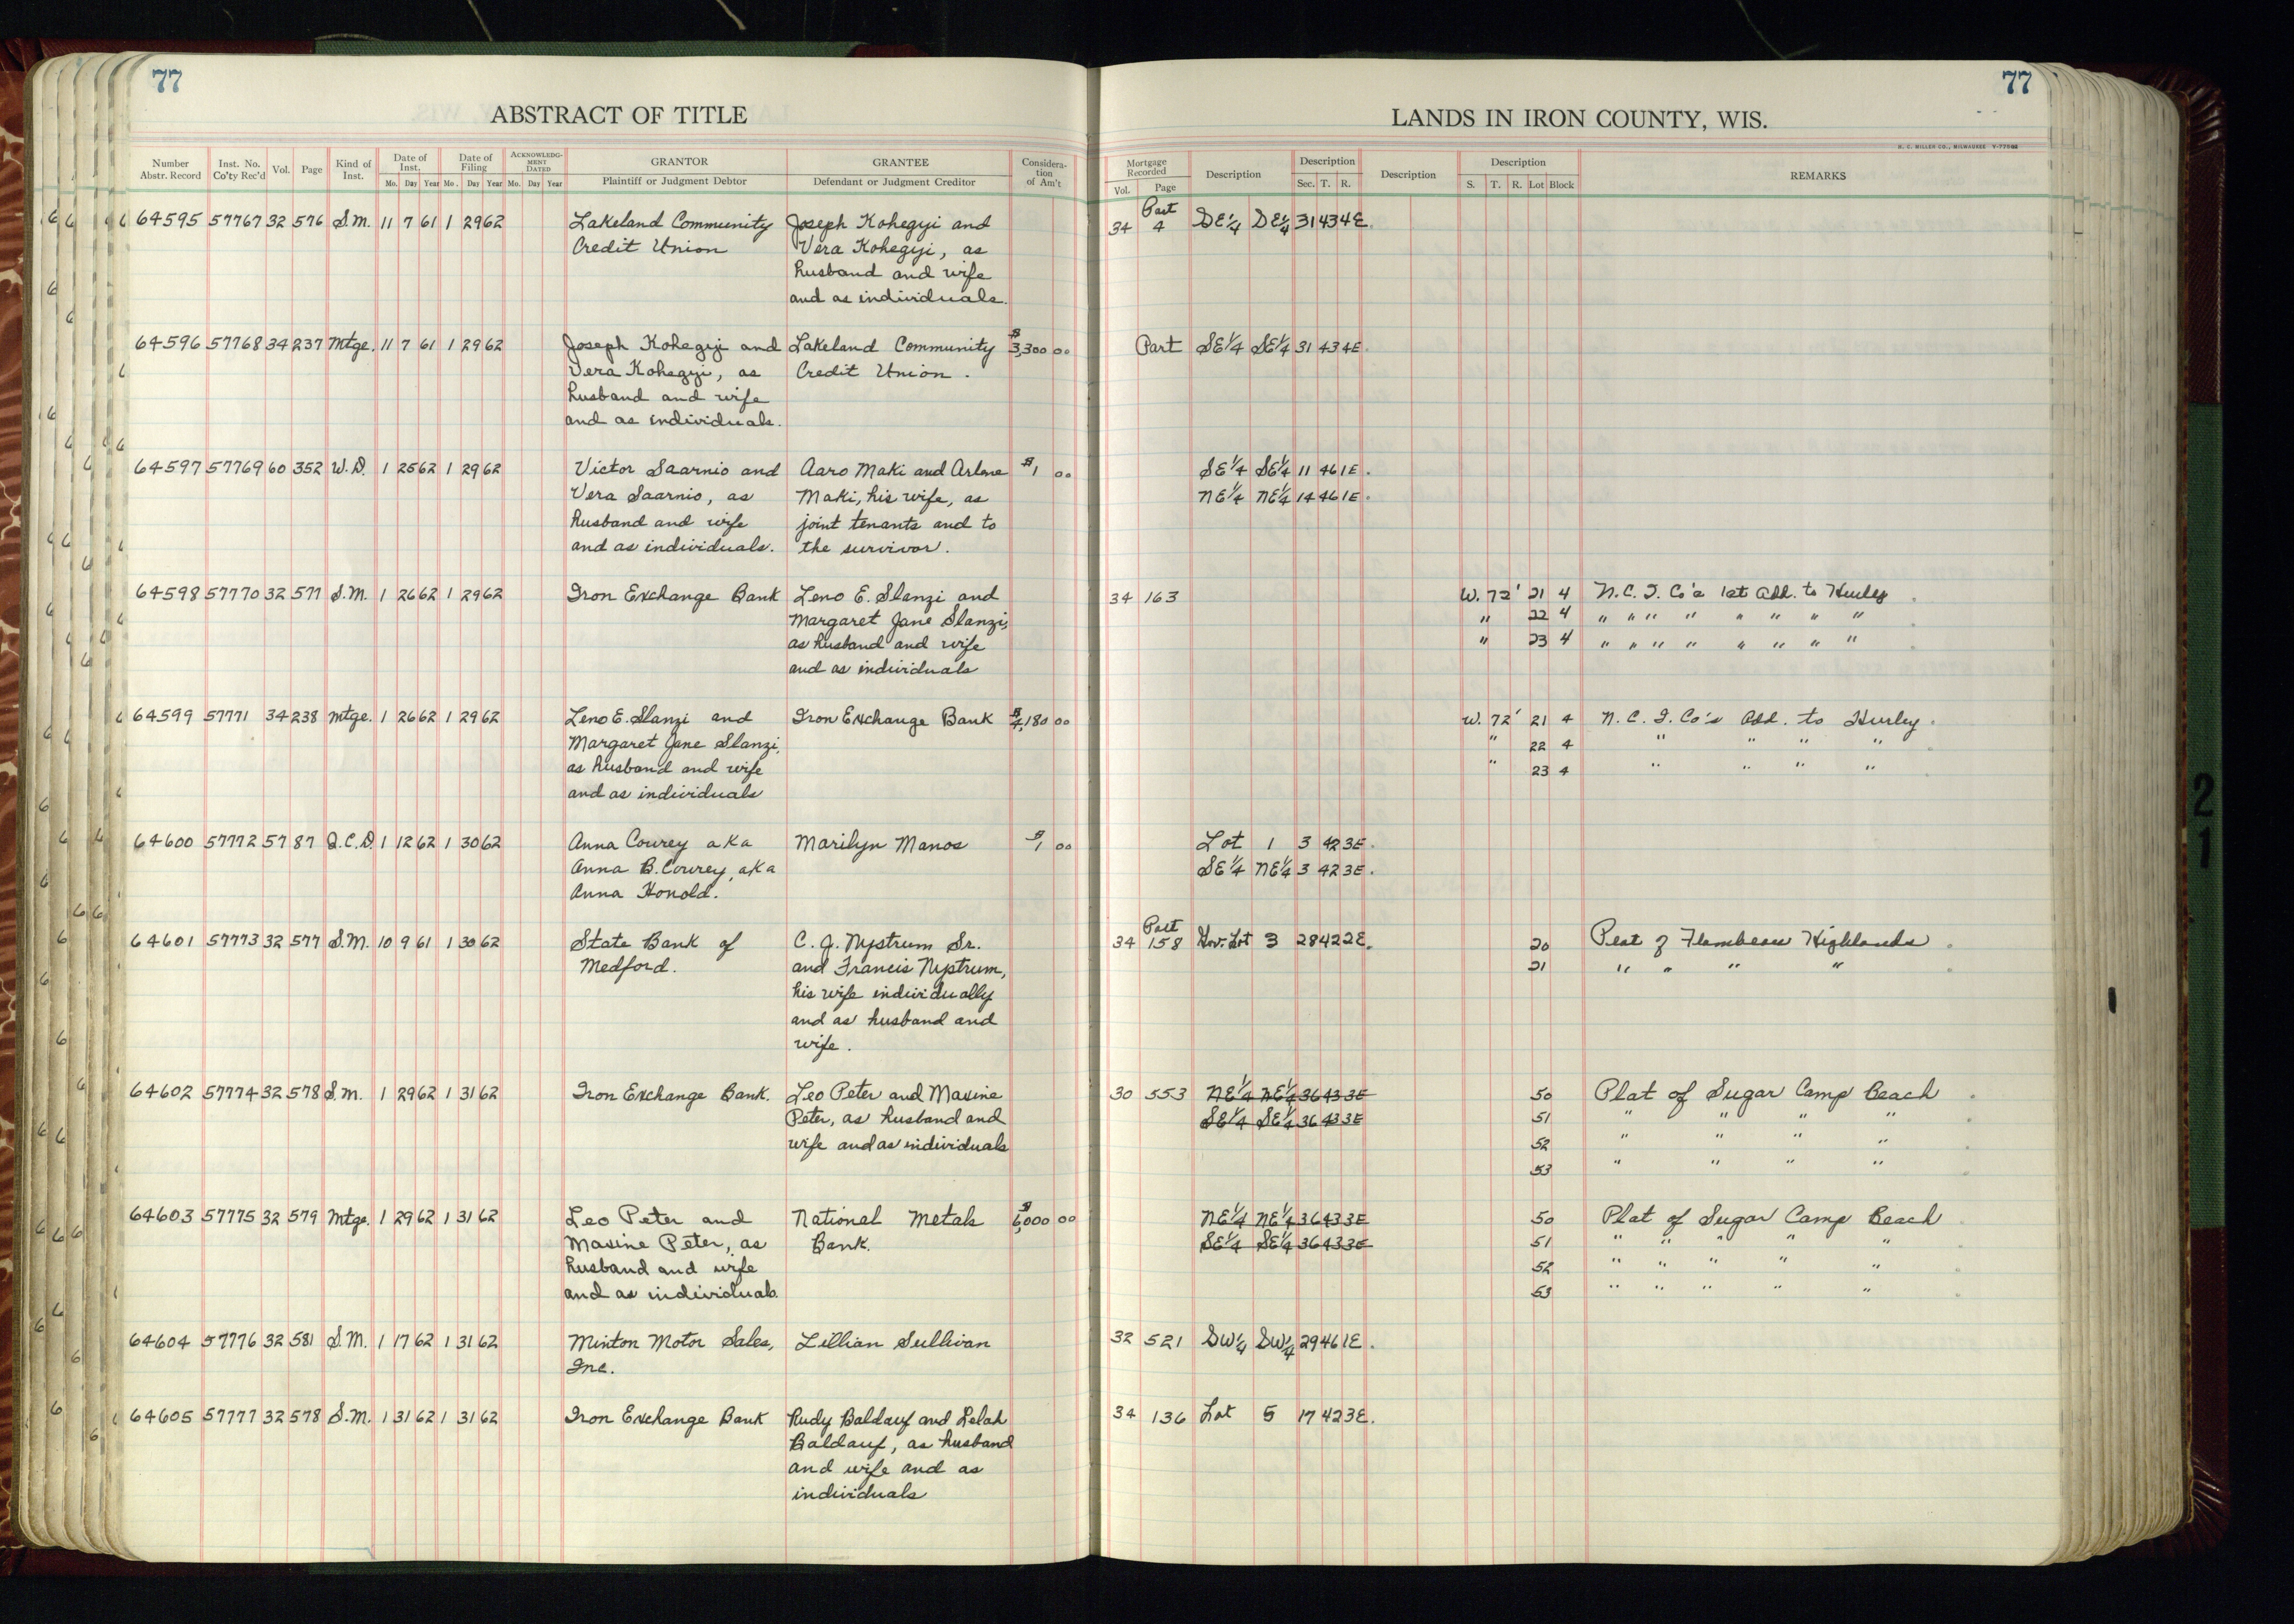 77
77
ABSTRACT OF TITLE
LANDS IN IRON COUNTY, WIS.
H. C. MILLER CO., MILWAUKEE
Number Abstr. Record Inst. No. Co'ty Rec'd Vol. Page Kind of Inst. Date of Inst. Mo. Day Year Date of Filing Mo. Day Year ACKNOWLEDGMENT DATED Mo. Day Year GRANTOR Plaintiff or Judgment Debtor GRANTEE Defendant or Judgment Creditor Consideration of Am't
Mortgage Recorded Vol. Page Description Description Sec. T. R. Description Description S. T. R. Lot Block REMARKS
64595 57767 32 576 S.M. 11 7 61 1 29 62 Lakeland Community Joseph Kohegyi and 34 Part 4 SE¼ SE¼ 31 43 4E.
Credit Union Vera Kohegyi, as
husband and wife
and as individuals.
64596 57768 34 237 Mtge. 11 7 61 1 29 62 Joseph Kohegyi and Lakeland Community $3,300 00 Part SE¼ SE¼ 31 43 4E.
Vera Kohegyi, as Credit Union.
husband and wife
and as individuals.
64597 57769 60 352 W.D. 1 25 62 1 29 62 Victor Saarnio and Aaro Maki and Arlene $1 00 SE¼ SE¼ 11 46 1E.
Vera Saarnio, as Maki, his wife, as NE¼ NE¼ 14 46 1E.
husband and wife joint tenants and to
and as individuals. the survivor.
64598 57770 32 577 S.M. 1 26 62 1 29 62 Iron Exchange Bank Leno E. Slanzi and 34 163 W. 72' 21 4 N.C.I. Co's 1st Add. to Hurley.
Margaret Jane Slanzi, " 22 4 " " " " " " " "
as husband and wife " 23 4 " " " " " " " "
and as individuals
64599 57771 34 238 Mtge. 1 26 62 1 29 62 Leno E. Slanzi and Iron Exchange Bank $4,180 00 W. 72' 21 4 N.C.I. Co's Add. to Hurley.
Margaret Jane Slanzi, " 22 4 " " " "
as husband and wife " 23 4 " " " "
and as individuals
64600 57772 57 87 Q.C.D. 1 12 62 1 30 62 Anna Cowrey aka Marilyn Manos $1 00 Lot 1 3 42 3E.
Anna B. Cowrey, aka SE¼ NE¼ 3 42 3E.
Anna Honold.
64601 57773 32 577 S.M. 10 9 61 1 30 62 State Bank of C. J. Nystrum Sr. 34 Part 158 Gov. Lot 3 28 42 2E. 20 Plat of Flambeau Highlands.
Medford. and Francis Nystrum, 21 " " " "
his wife individually
and as husband and
wife.
64602 57774 32 578 S.M. 1 29 62 1 31 62 Iron Exchange Bank. Leo Peter and Maxine 30 553 NE¼ NE¼ 36 43 3E 50 Plat of Sugar Camp Beach
Peter, as husband and SE¼ SE¼ 36 43 3E 51 " " " "
wife and as individuals 52 " " " "
53 " " " "
64603 57775 32 579 Mtge. 1 29 62 1 31 62 Leo Peter and National Metals $6,000 00 NE¼ NE¼ 36 43 3E 50 Plat of Sugar Camp Beach
Maxine Peter, as Bank. SE¼ SE¼ 36 43 3E 51 " " " " "
husband and wife 52 " " " " "
and as individuals. 53 " " " " "
64604 57776 32 581 S.M. 1 17 62 1 31 62 Minton Motor Sales, Lillian Sullivan 32 521 SW¼ SW¼ 29 46 1E.
Inc.
64605 57777 32 578 S.M. 1 31 62 1 31 62 Iron Exchange Bank Rudy Baldauf and Lelah 34 136 Lot 5 17 42 3E.
Baldauf, as husband
and wife and as
individuals
21